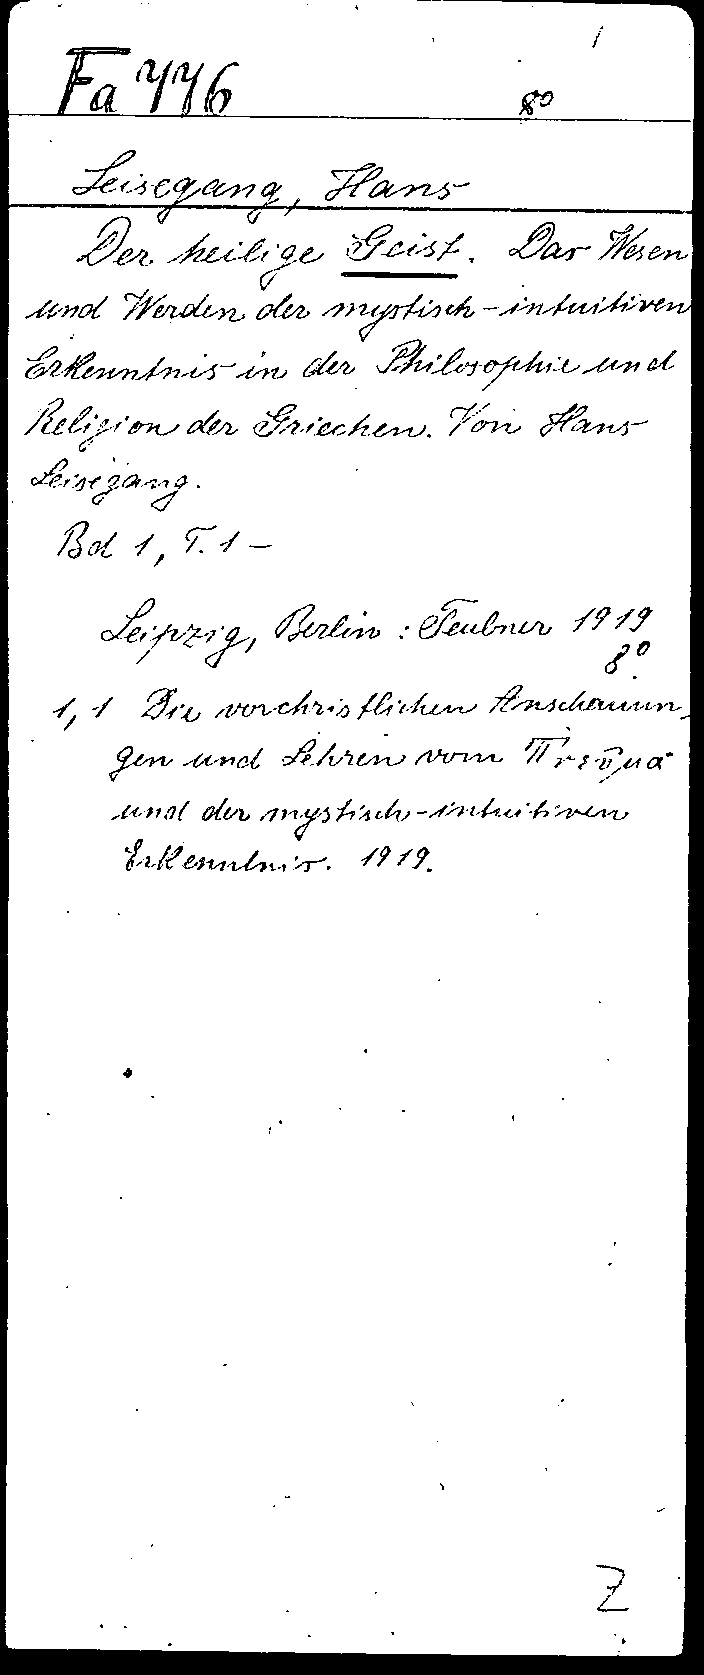 Fa 776 8°
Leisegang, Hans
Der heilige Geist. Das Wesen
und Werden der mystisch-intuitiven
Erkenntnis in der Philosophie und
Religion der Griechen. Von Hans
Leisegang.
Bd 1, T. 1 –
Leipzig, Berlin : Teubner 1919
8°
1,1 Die vorchristlichen Anschauun-
gen und Lehren vom Πνεῦμα
und der mystisch-intuitiven
Erkenntnis. 1919.
Z